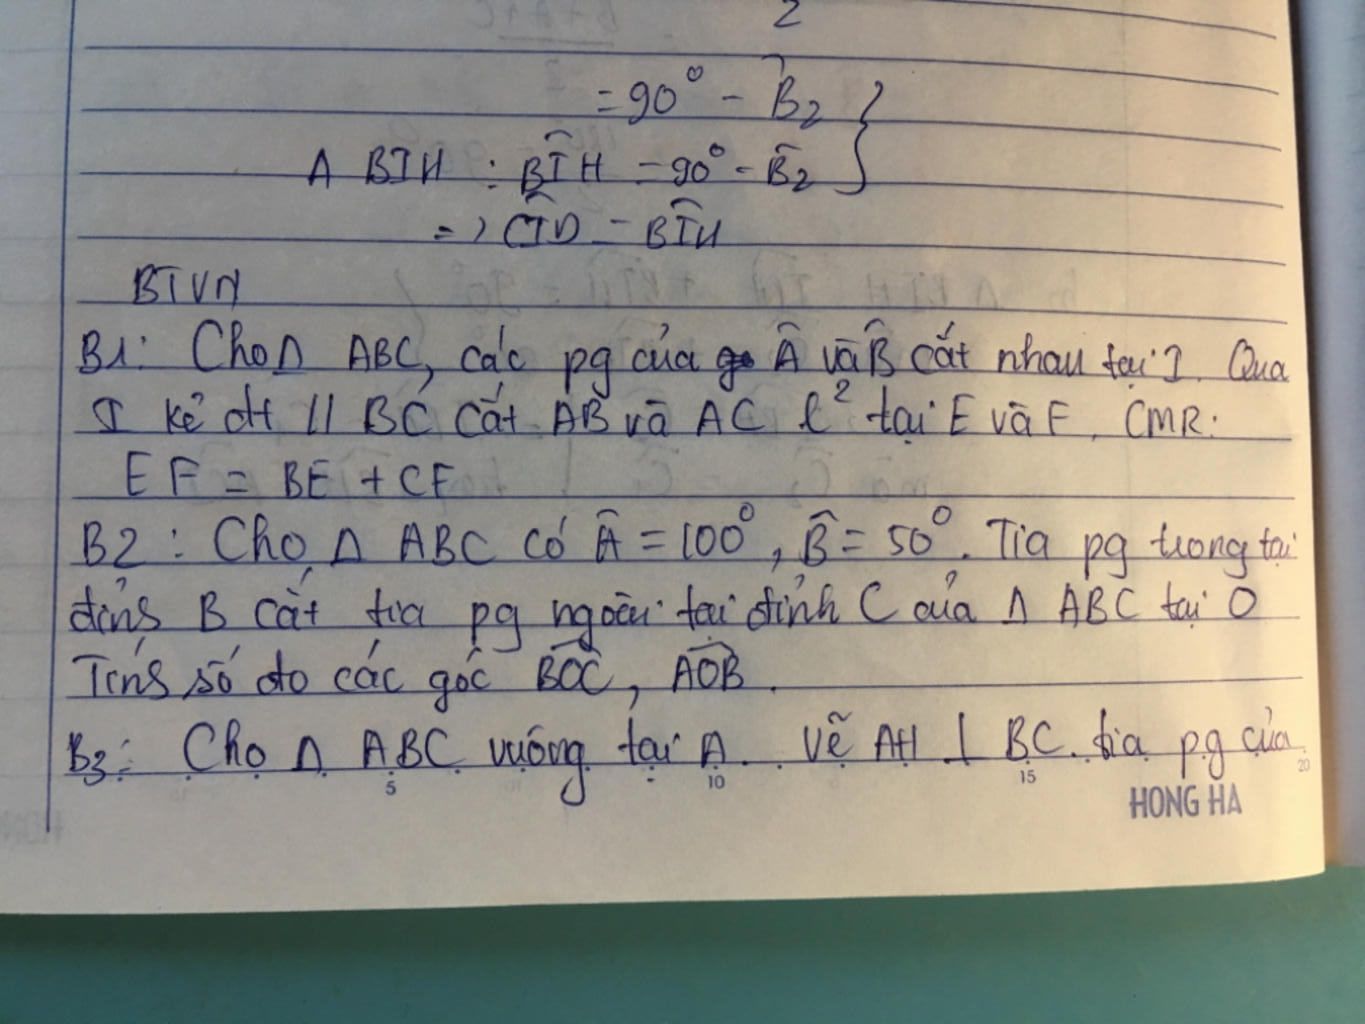 2
= 90° - B̂2
Δ BIH : BÎH = 90° - B̂2
=> CÎD = BÎH
BTVN
B1: Cho Δ ABC, các pg của Â và B̂ cắt nhau tại I. Qua
I kẻ đt // BC cắt AB và AC l² tại E và F. CMR:
EF = BE + CF
B2: Cho Δ ABC có Â = 100°, B̂ = 50°. Tia pg trong tại
đỉnh B cắt tia pg ngoài tại đỉnh C của Δ ABC tại O
Tính số đo các góc BÔC, AÔB.
B3: Cho Δ ABC vuông tại A. Vẽ AH ⊥ BC. tia pg của
5 10 15 20
HONG HA